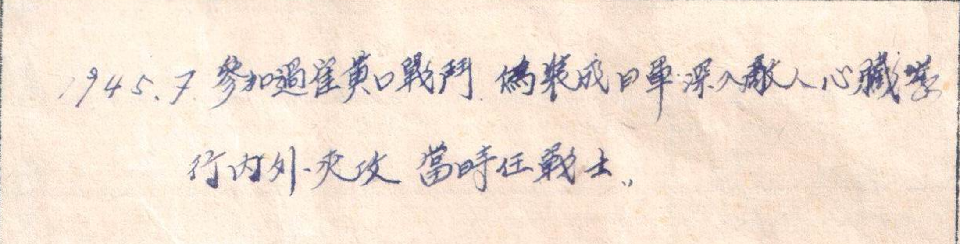 1945.7.參加過崔黄口戰鬥.偽裝成日軍深入敵人心臟举
行内外夾攻 當時任戰士.